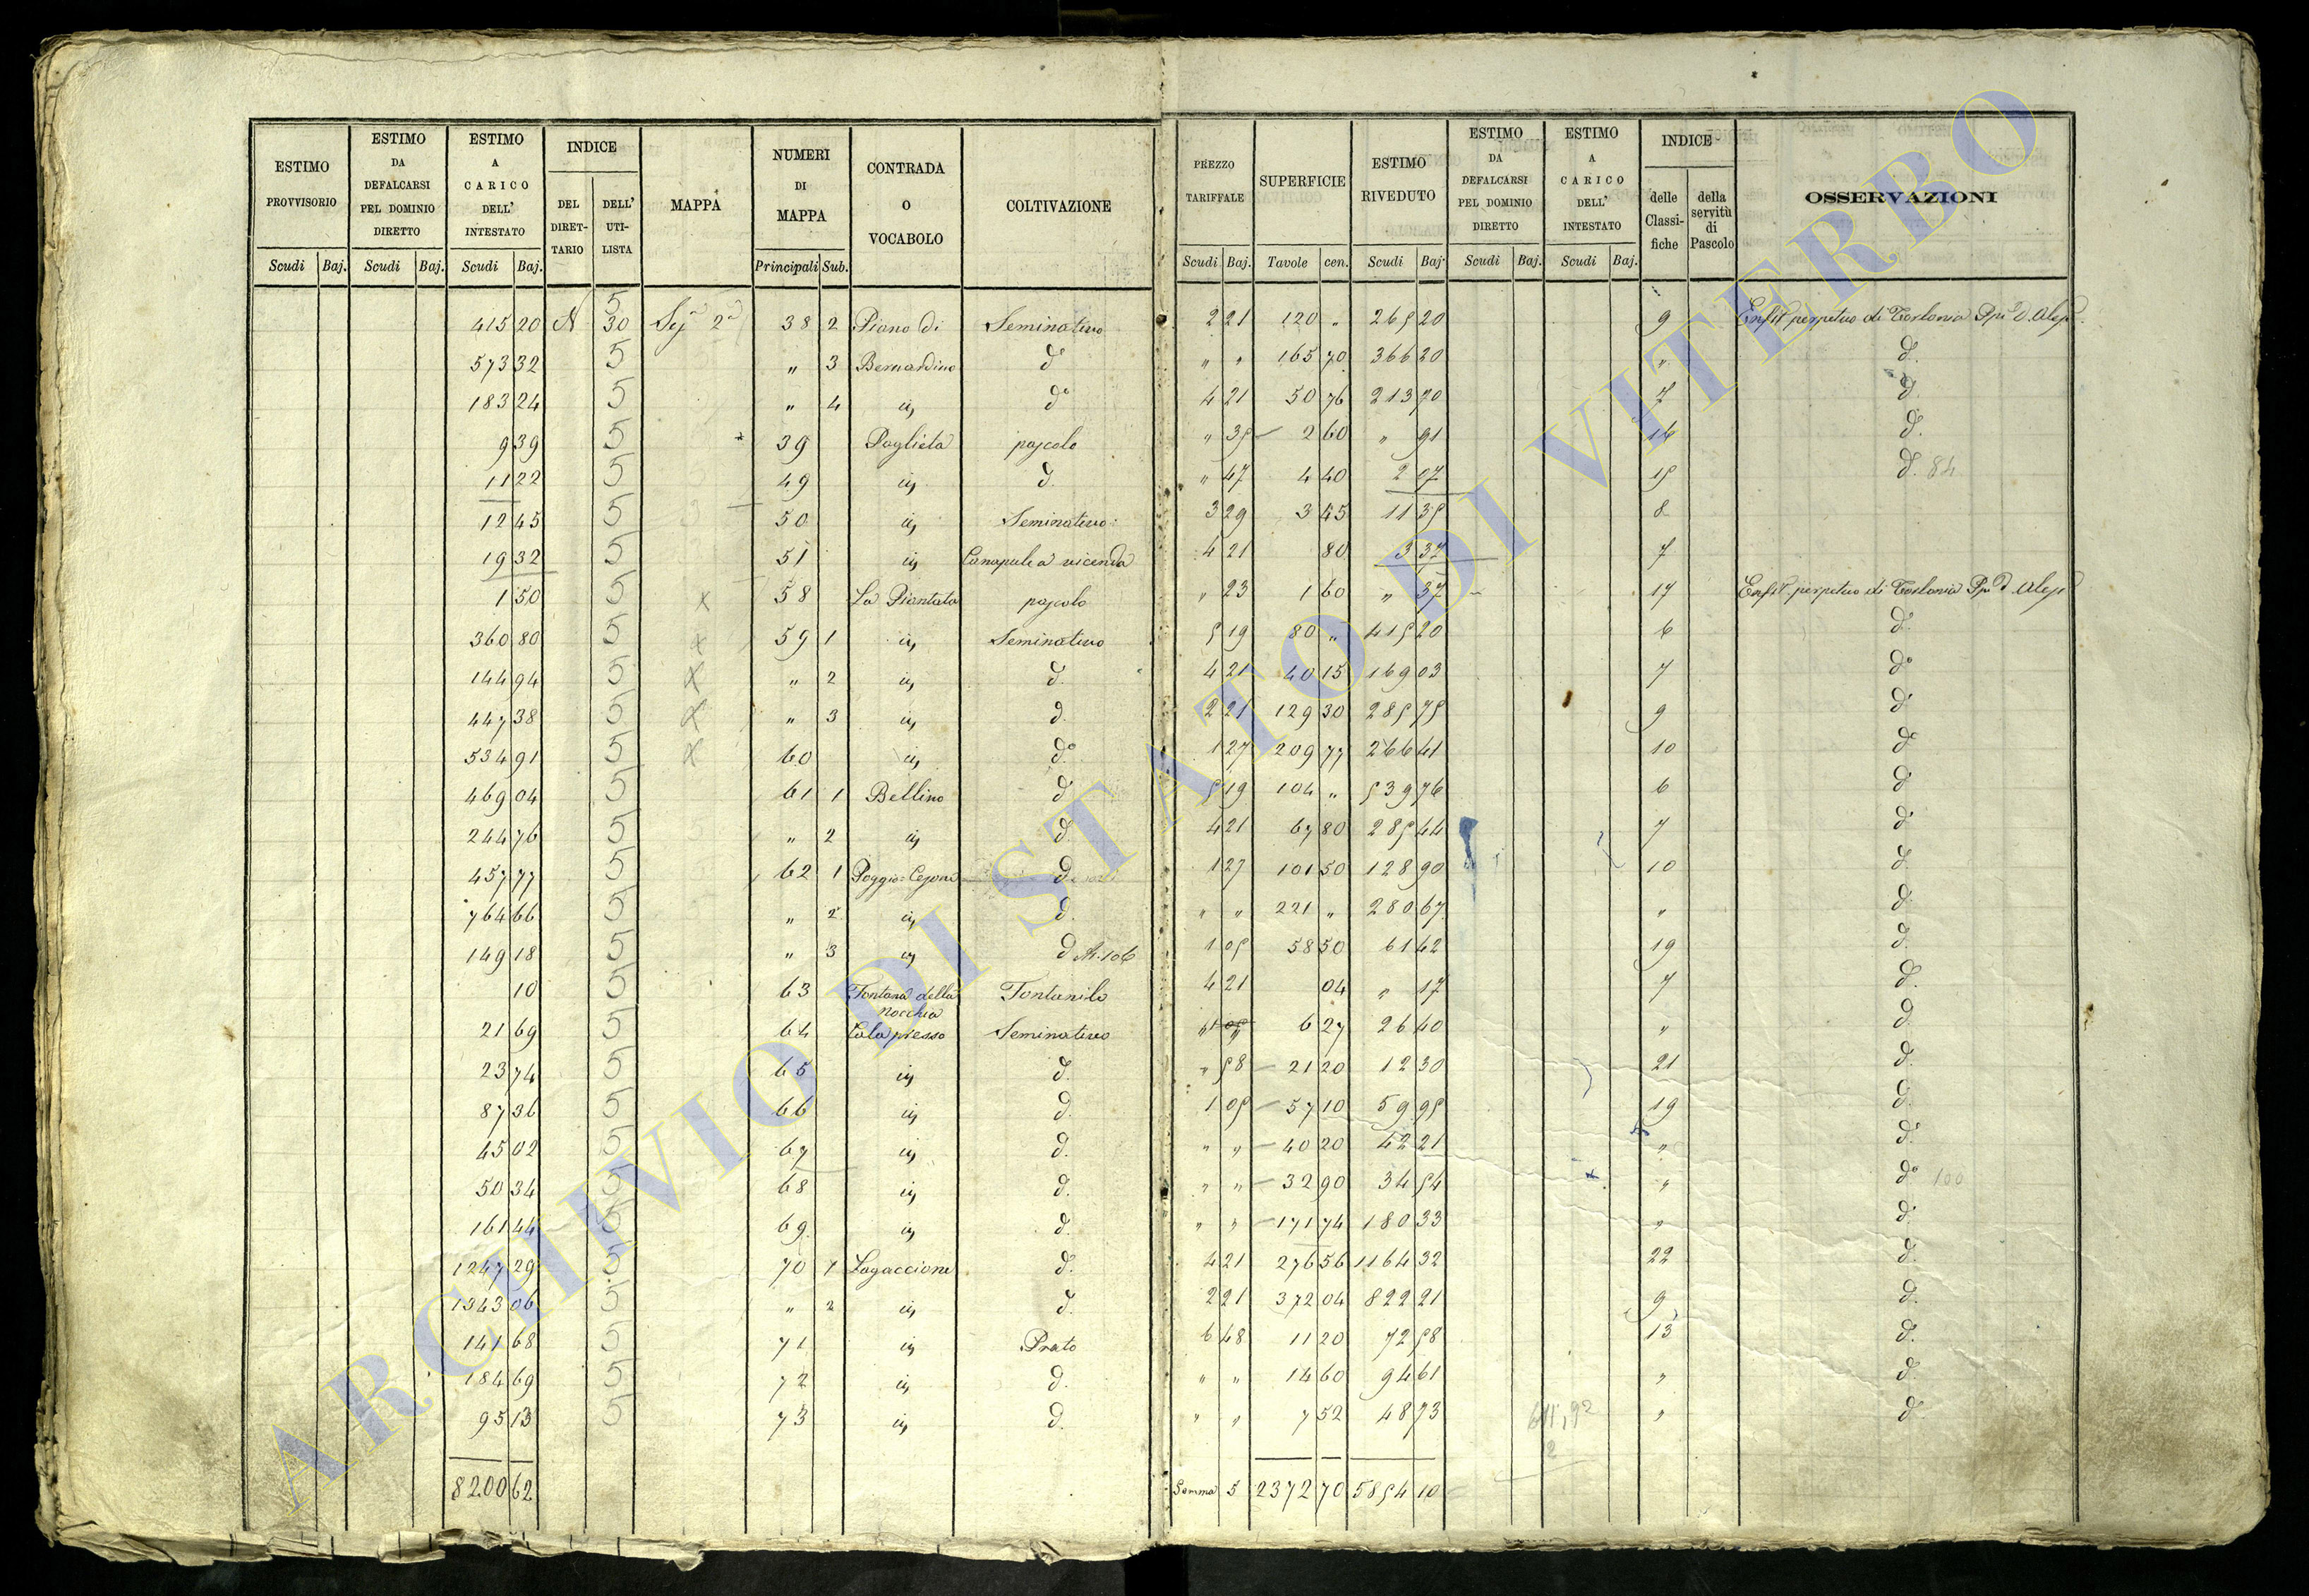 ESTIMO PROVVISORIO
ESTIMO DA DEFALCARSI PEL DOMINIO DIRETTO
ESTIMO A CARICO DELL' INTESTATO
INDICE
DEL DIRET-TARIO
DELL' UTI-LISTA
MAPPA
NUMERI DI MAPPA
CONTRADA O VOCABOLO
COLTIVAZIONE
PREZZO TARIFFALE
SUPERFICIE
ESTIMO RIVEDUTO
ESTIMO DA DEFALCARSI PEL DOMINIO DIRETTO
ESTIMO A CARICO DELL' INTESTATO
INDICE
delle Classi-fiche
della servitù di Pascolo
OSSERVAZIONI
Scudi Baj. Scudi Baj. Scudi Baj. Principali Sub. Scudi Baj. Tavole cen. Scudi Baj. Scudi Baj. Scudi Baj.
415 20 N 5 30 2ª 38 2 Piano di Seminativo 2 21 120 " 265 20 9 Enfit perpetuo di Torlonia
573 32 5 " 3 Bernardino dº " " 165 70 366 20 " dº
183 24 5 " 4 iij dº 4 21 50 76 213 70 7 d.
9 39 5 39 Paglieta pascolo " 35 2 60 " 91 14 d.
11 22 5 49 iij d. " 47 4 40 2 07 15 d. 84
12 45 5 50 iij Seminativo 3 29 3 45 11 35 8
19 32 5 51 iij Canapule a vicenda 4 21 80 3 37 7
1 50 5 x 58 La Piantata pascolo " 23 1 60 " 37 17 Enfit perpetuo di Torlonia
360 80 5 x 59 1 iij Seminativo 5 19 80 " 415 20 6 d.
144 94 5 x " 2 iij d. 4 21 40 15 169 03 7 dº
447 38 5 x " 3 iij d. 2 21 129 30 285 75 9 d.
534 91 5 x 60 iij dº 1 27 209 77 266 41 10 dº
469 04 5 61 1 Bellino d. 5 19 104 " 539 76 6 d.
244 76 5 " 2 iij d. 4 21 67 80 285 44 7 d.
457 77 5 62 1 d. 1 27 101 50 128 90 10 d.
764 66 5 " 2 iij d. " " 221 " 280 67 " d.
149 18 5 " 3 iij d. N. 106 1 05 58 50 61 42 19 d.
10 5 63 Fontana della Nocchia Fontanile 4 21 04 " 17 7 d.
21 69 5 64 Cala presso Seminativo 6 27 26 40 " d.
23 74 5 65 iij d. " 58 21 20 12 30 21 d.
87 36 5 66 iij d. 1 05 57 10 59 95 19 d.
45 02 5 67 iij d. " " 40 20 42 21 " d.
50 34 5 68 iij d. " " 32 90 34 54 " dº 100
161 44 5 69 iij d. " " 171 74 180 33 " d.
1247 29 5 70 1 Lagaccione d. 4 21 276 56 1164 32 22 d.
1343 06 5 " 2 iij d. 2 21 372 04 822 21 9 d.
141 68 5 71 iij Prato 6 48 11 20 72 58 13 d.
184 69 5 72 iij d. " " 14 60 94 61 " d.
95 13 5 73 iij d. " " 7 52 48 73 " d.
8200 62 Somma 5 2372 70 5854 10
ARCHIVIO DI STATO DI VITERBO